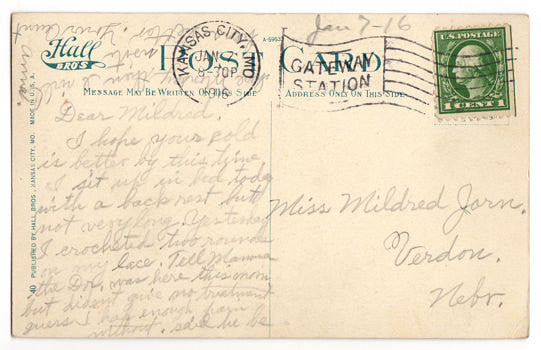 Jan 7-16
Hall
BRO'S
POST CARD
A-5953
KANSAS CITY, MO
JAN
8-30P
1916
GATEWAY
STATION
U.S. POSTAGE
1 CENT 1
MESSAGE MAY BE WRITTEN ON THIS SIDE
ADDRESS ONLY ON THIS SIDE
40 PUBLISHED BY HALL BROS., KANSAS CITY, MO. MADE IN U.S.A.
Dear Mildred.
I hope your cold
is better by this time.
I sit up in bed today
with a back rest but
not very long. Yesterday
I crocheted two rounds
on my lace. Tell Mamma
the Dr. was here this morn
but dident give no treatment
guess I had enough pain
without. said he be
Your Aunt
Anna.
Miss Mildred Jorn.
Verdon.
Nebr.